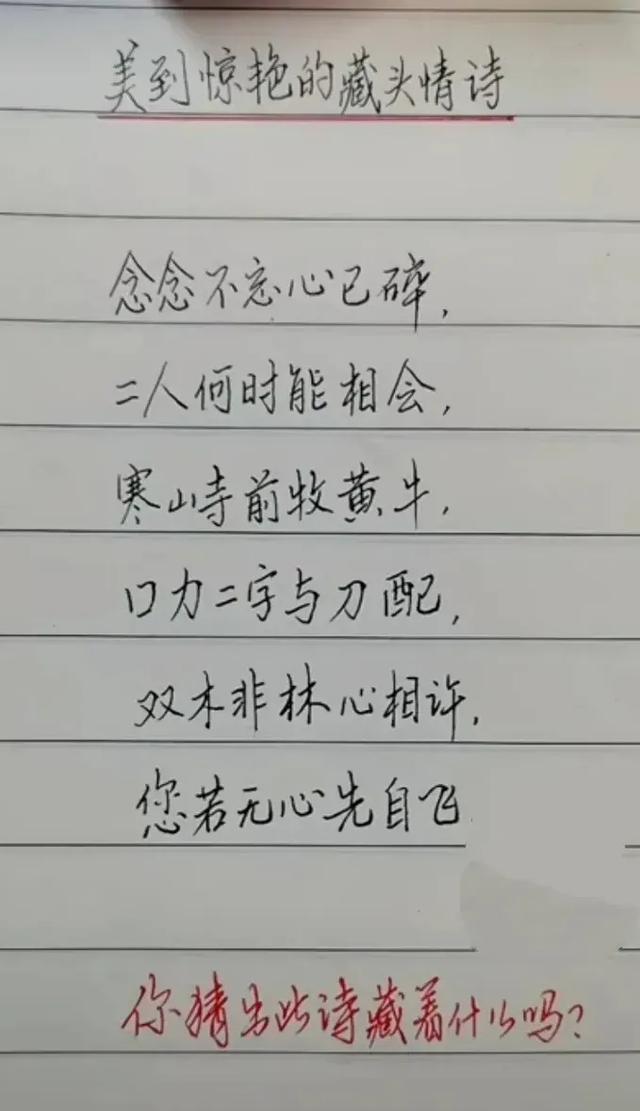 美到惊艳的藏头情诗
念念不忘心已碎，
二人何时能相会，
寒山寺前牧黄牛，
口力二字与刀配，
双木非林心相许，
您若无心先自飞
你猜出此诗藏着什么吗？